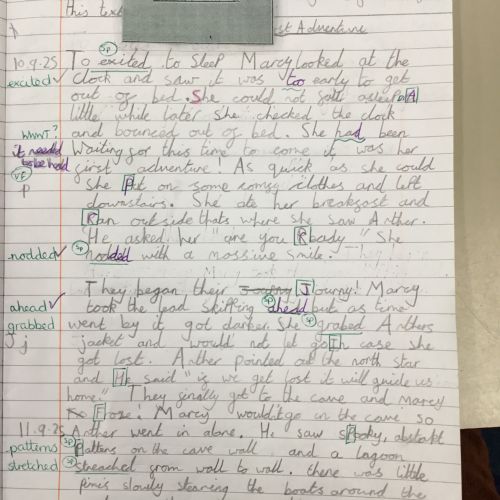 this text
st Adventure
10.9.25 To exited to sleep Marcy looked at the
sp
excited ✓ clock and saw it was too early to get
out of bed. She could not fall asleep. A
little while later she checked the clock
WWWT? and bounced out of bed. She had been
it needed to be had Waiting for this time to come it was her
first adventure! As quick as she could
VF P she Put on some comfy clothes and left
downstairs. She ate her breakfast and
Ran outside thats where she saw Arther.
He asked her "are you Ready" She
nodded ✓ sp nodded with a massive smile.
They began their Journy! Marcy
ahead ✓ took the lead skipping sp ahead but as time
grabbed went by it got darker. She sp grabed Arthers
J j jacket and would not let go In case she
got lost. Arther pointed out the north star
and He said "if we get lost it will guide us
home." They finally got to the cave and Marcy
Froze! Marcy wouldnt go in the cave so
11.9.25 Arther went in alone. He saw Spooky, abstakt
patterns sp Pattens on the cave wall and a lagoon
stretched sp streached from wall to wall. there was little
slowly stearing the boats around the